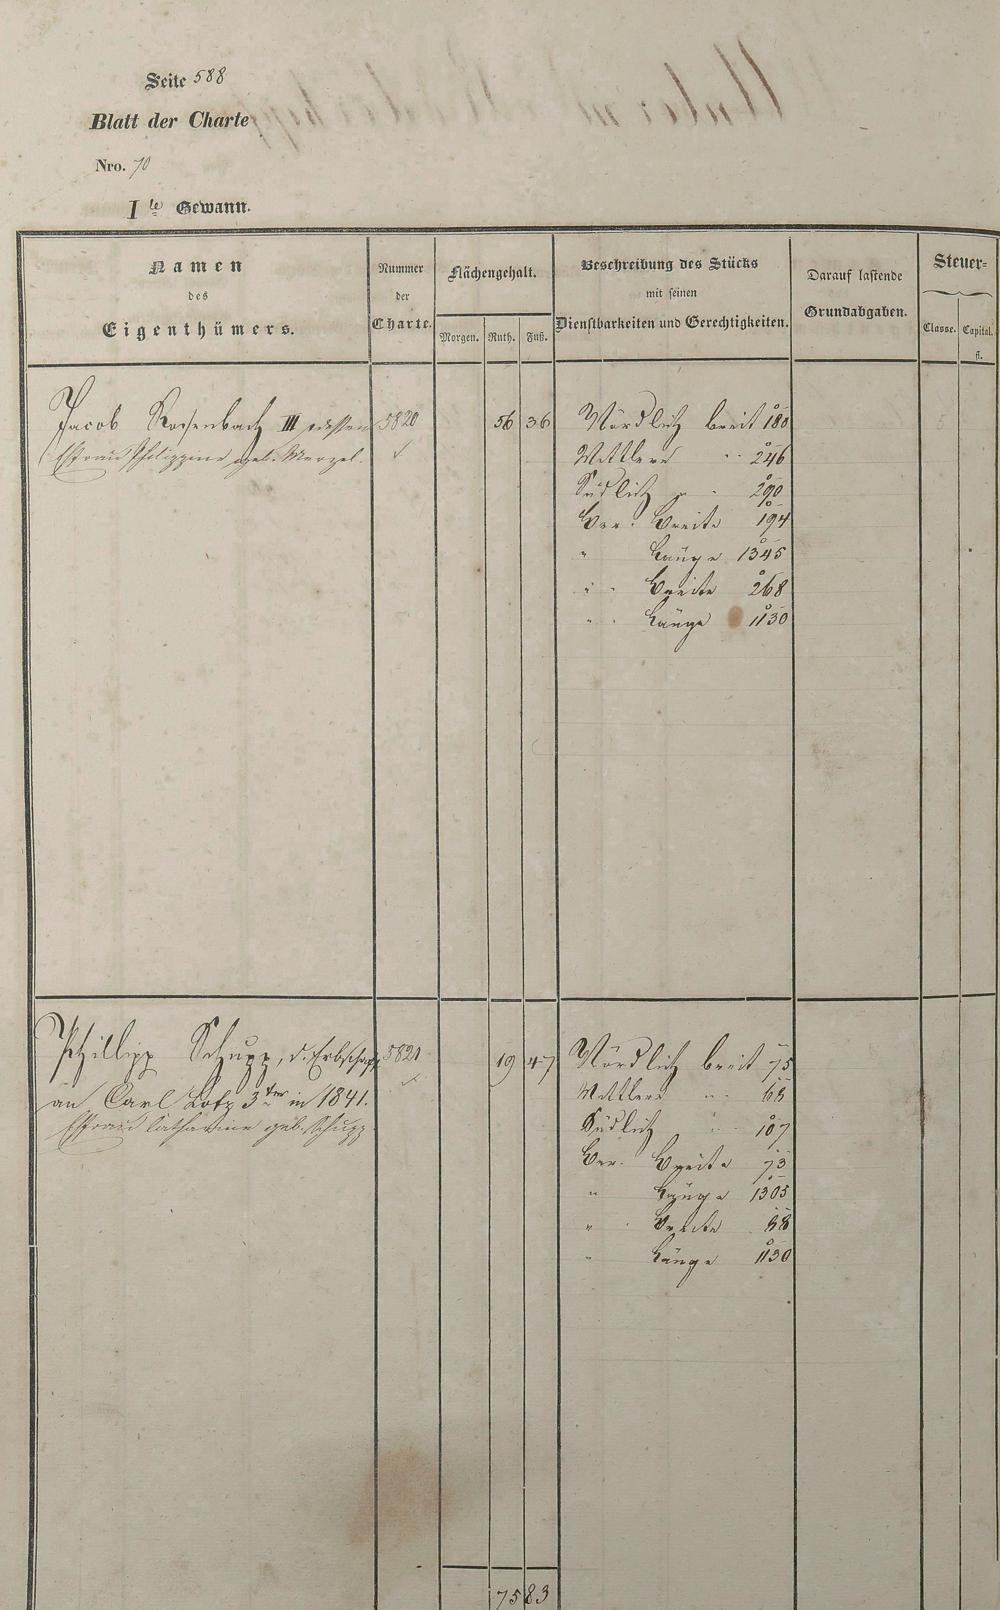 Seite 588
Blatt der Charte
Nro. 70
I te Gewann.
Namen
des
Eigenthümers.
Nummer
der
Charte.
Flächengehalt.
Morgen. Ruth. Fuß.
Beschreibung des Stücks
mit seinen
Dienstbarkeiten und Gerechtigkeiten.
Darauf lastende
Grundabgaben.
Steuer-
Classe. Capital.
fl.
Jacob Rossenbach III dessen 5820 56 36 Nördlich breit 180
Ehfrau Philippine geb. Menzel. Mittlere " 246
Südlich " 290
Ver. Breite 194
" Länge 1345
" Breite 268
" Länge 1130
Phillipp Schupp, d. Erbschaft 5821 19 47 Nördlich breit 75
an Carl Lotz 3ter in 1841. Mittlere " 68
Ehfrau Catharine geb. Schupp Südlich " 107
Ver. Breite 73
" Länge 1305
" Breite 88
" Länge 1130
75 83